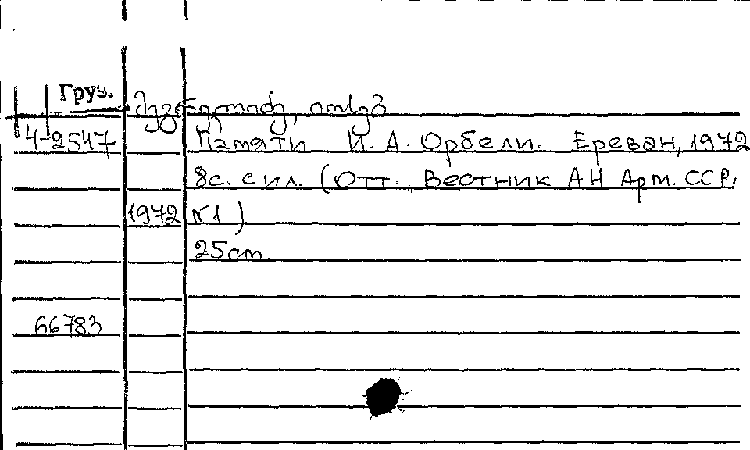 Груз.
მეგრელიძე, იოსებ
4-2547 Памяти И. А. Орбели. Ереван, 1972
8с. с ил. (Отт. Вестник АН Арм. ССР,
1972 №1)
25cm
66783